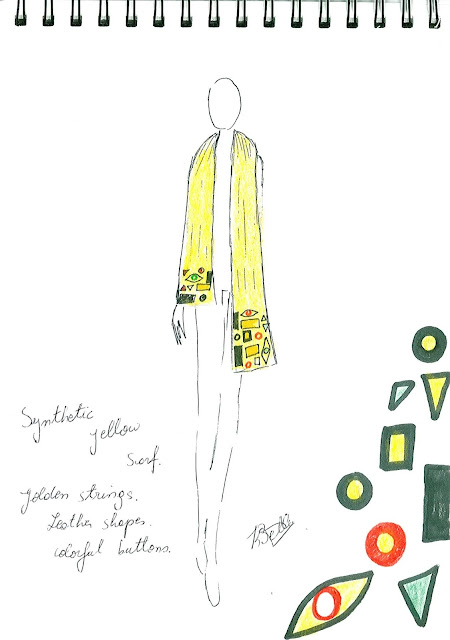 Synthetic
yellow
scarf.
golden strings.
Leather shapes.
colorful buttons.